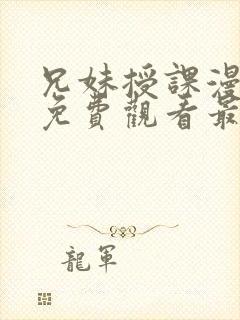 兄妹授課漫
免費觀看最
龍軍